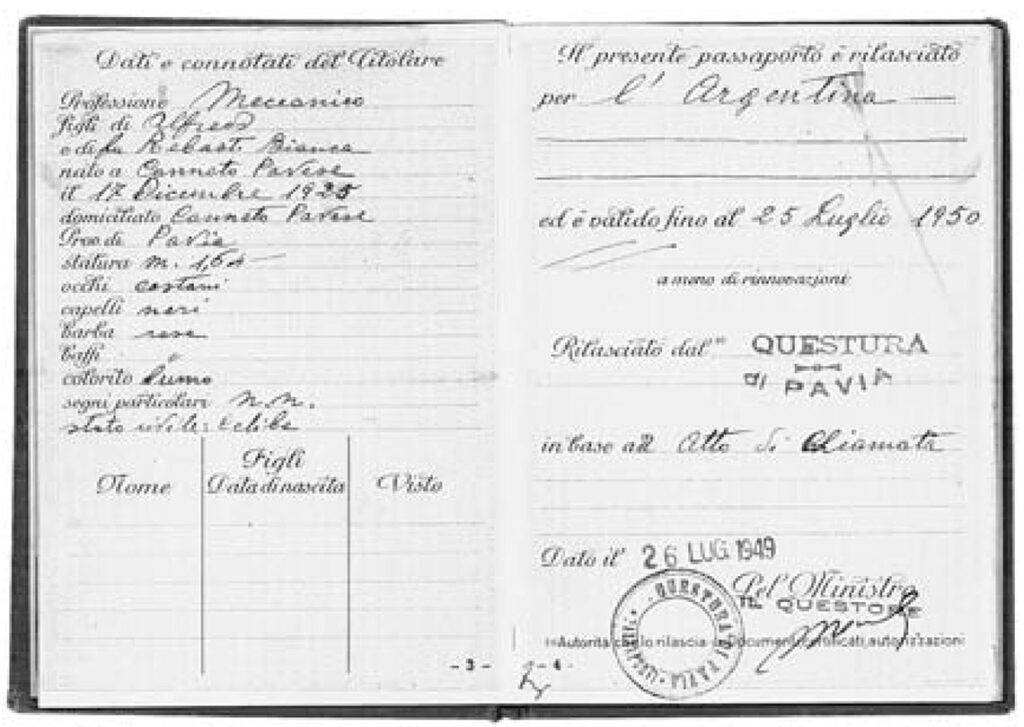 Dati e connotati del Titolare
Professione Meccanico
figli di Alfredo
e di fu Rebasti Bianca
nato a Canneto Pavese
il 17 Dicembre 1925
domiciliato Canneto Pavese
Prov. di Pavia
statura m. 1,64
occhi castani
capelli neri
barba rasa
baffi
colorito bruno
segni particolari n.n.
stato civile: celibe
Figli
Nome Data di nascita Visto
- 3 -
Il presente passaporto è rilasciato
per l' Argentina
ed è valido fino al 25 Luglio 1950
a meno di rinnovazioni
Rilasciato dal" QUESTURA
di PAVIA
in base all Atto di Chiamata
Dato il 26 LUG. 1949
Pel Ministro
IL QUESTORE
QUESTURA DI PAVIA
Autorità che lo rilascia Documenti, certificati, autorizzazioni
- 4 -